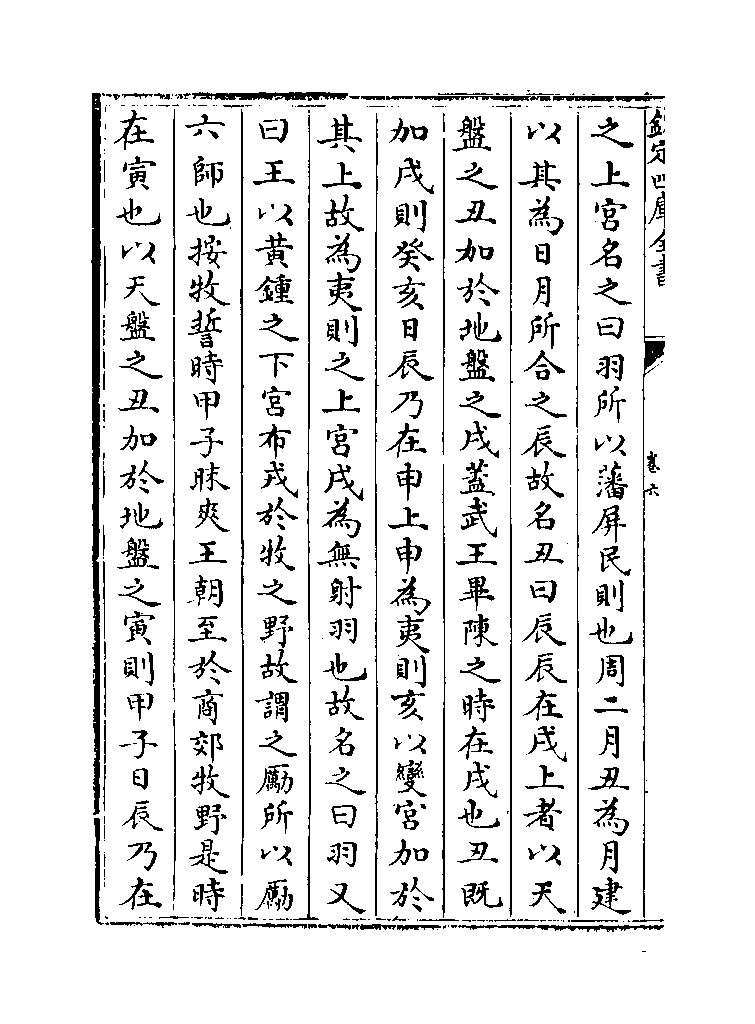 欽定四庫全書
卷六
之上宮名之曰羽所以藩屏民則也周二月丑為月建
以其為日月所合之辰故名丑曰辰辰在戌上者以天
盤之丑加於地盤之戌蓋武王畢陳之時在戌也丑既
加戌則癸亥日辰乃在申上申為夷則亥以變宮加於
其上故為夷則之上宮戌為無射羽也故名之曰羽又
曰王以黃鍾之下宮布戎於牧之野故謂之厲所以厲
六師也按牧誓時甲子昧爽王朝至於商郊牧野是時
在寅也以天盤之丑加於地盤之寅則甲子日辰乃在